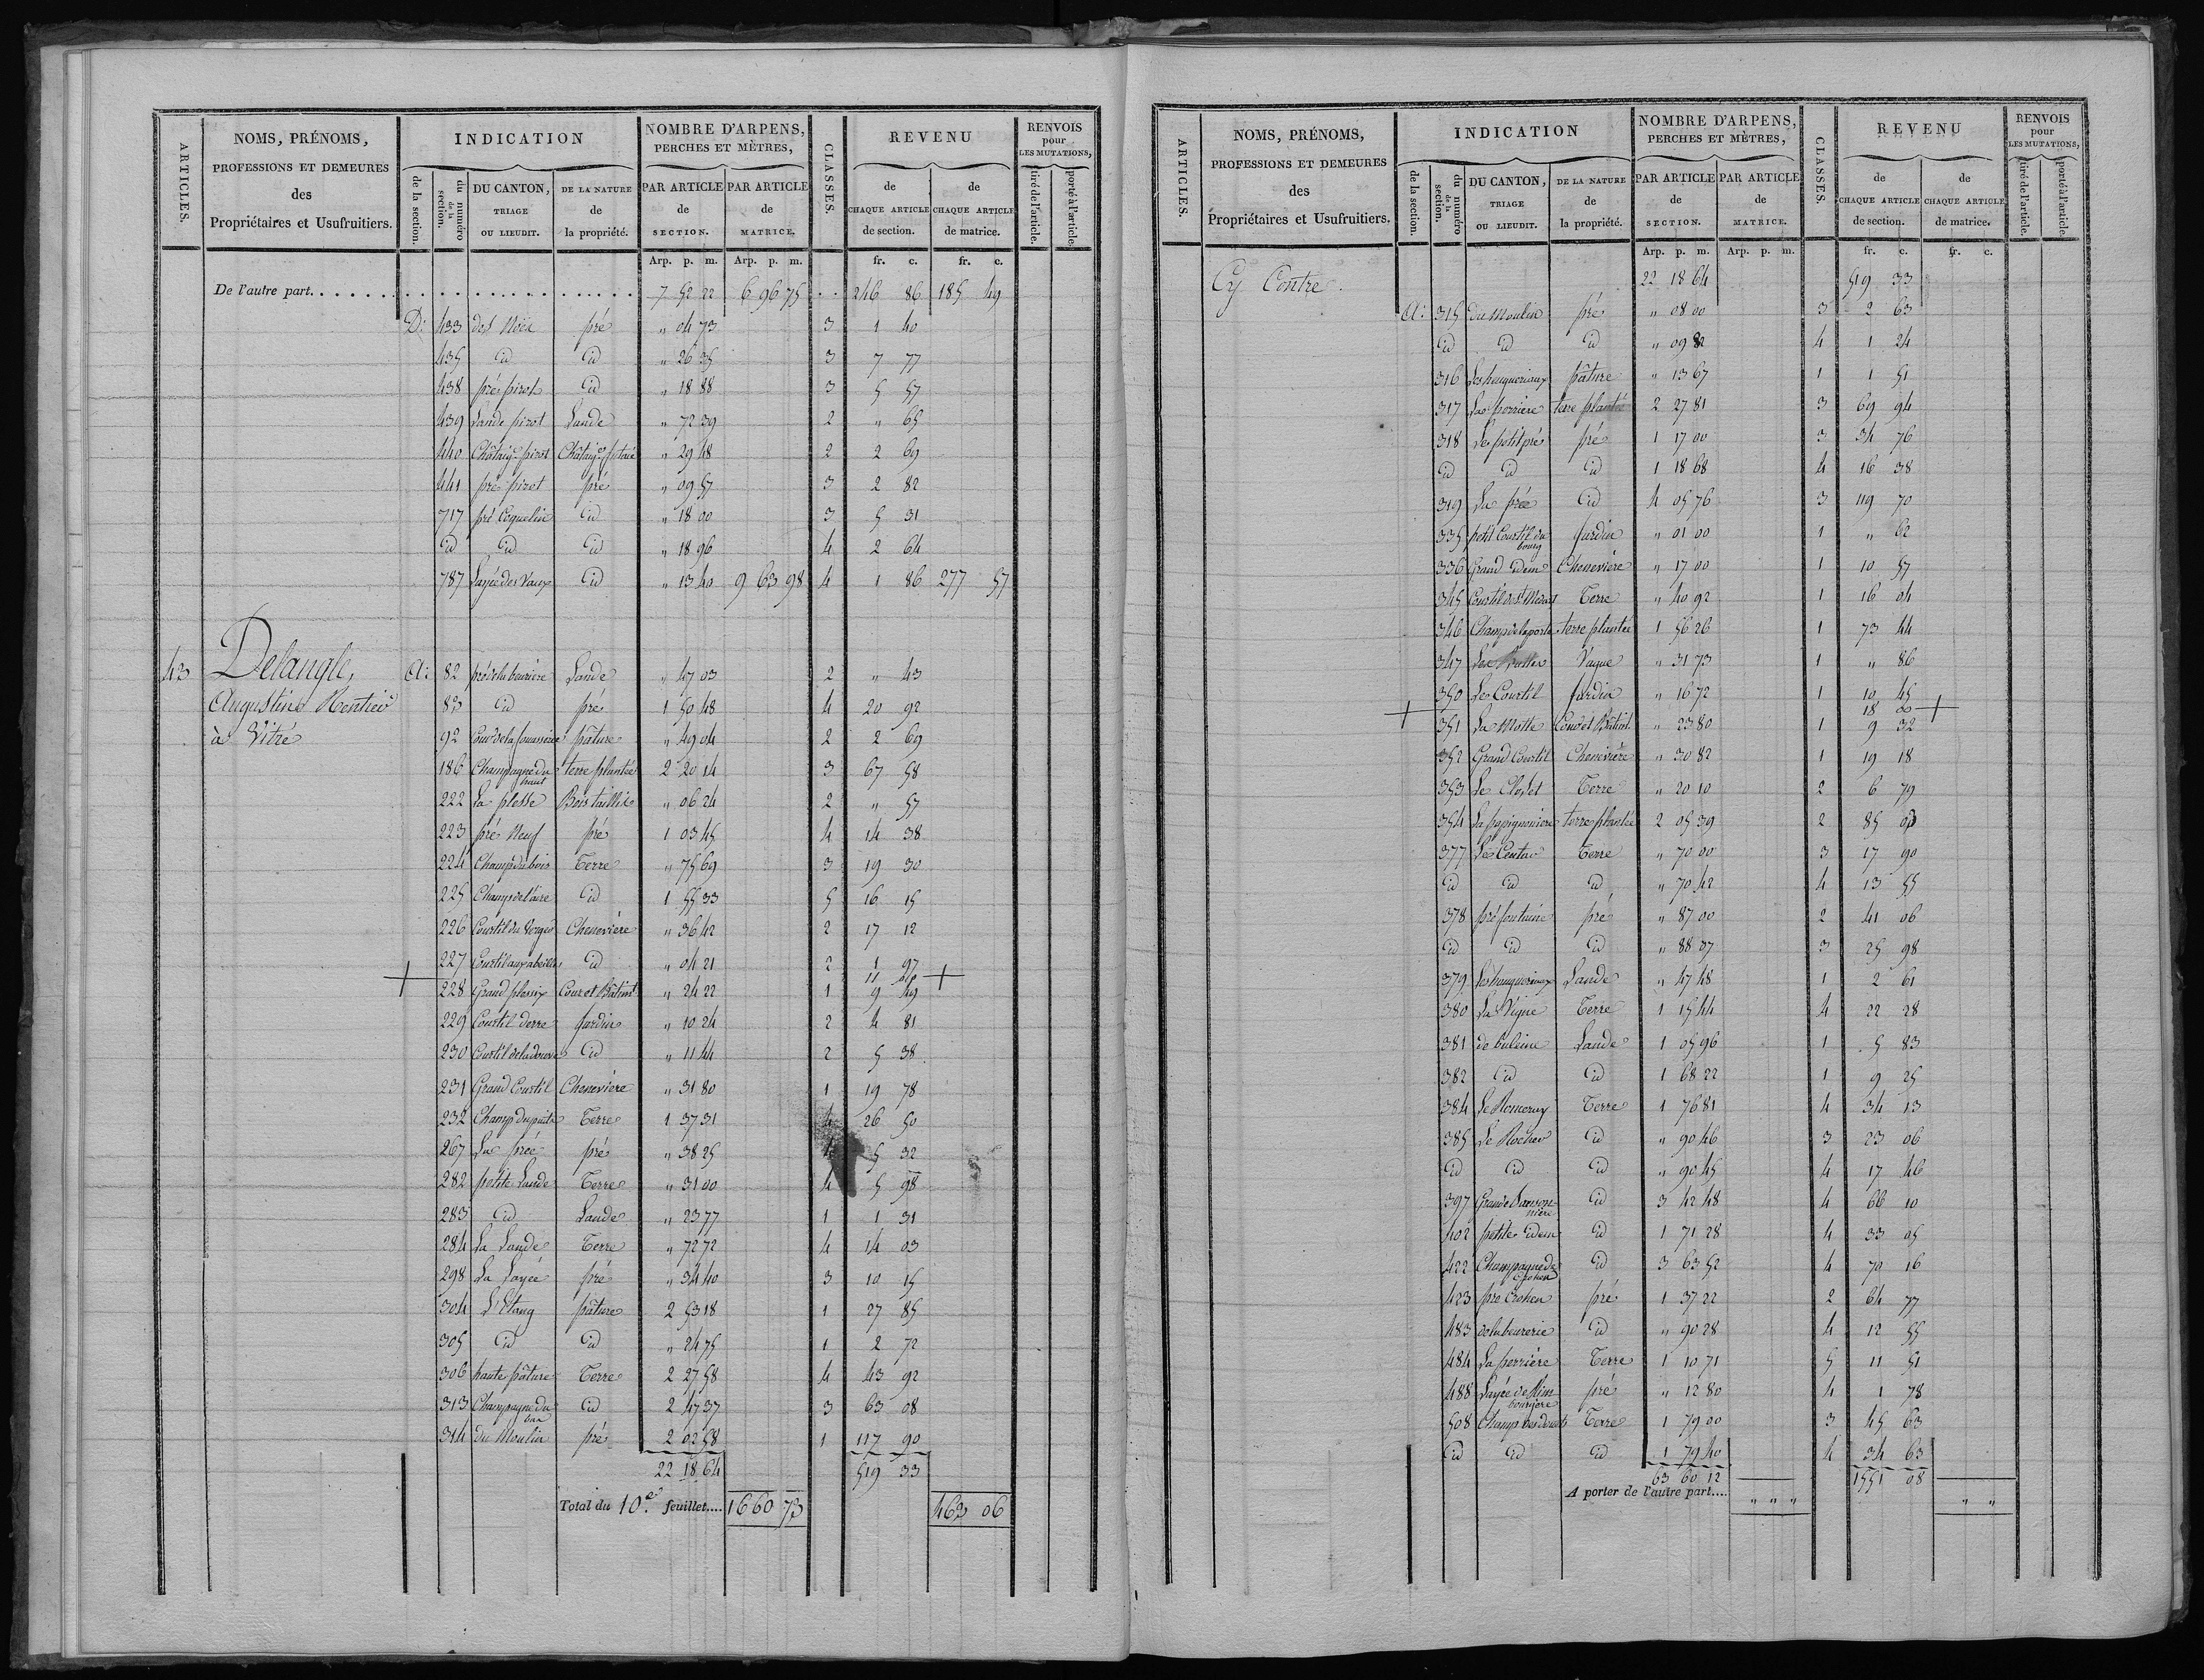 ARTICLES. NOMS, PRÉNOMS, PROFESSIONS ET DEMEURES des Propriétaires et Usufruitiers. INDICATION de la section. du numéro de la section. DU CANTON, TRIAGE OU LIEUDIT. DE LA NATURE de la propriété. NOMBRE D'ARPENS, PERCHES ET MÈTRES, PAR ARTICLE de SECTION. PAR ARTICLE de MATRICE. CLASSES. REVENU de CHAQUE ARTICLE de section. de CHAQUE ARTICLE de matrice. RENVOIS pour LES MUTATIONS, tiré de l'article. porté à l'article.
Arp. p. m. Arp. p. m. fr. c. fr. c.
De l'autre part. 7 52 22 6 96 75 246 86 185 49
D: 433 des Noës pré " 04 73 3 1 40
435 id id " 26 35 3 7 77
438 pré pirot id " 18 88 3 5 57
439 Lande pirot Lande " 72 39 2 " 65
440 Châtaig. pirot Châtaig. futaie " 29 48 2 2 69
441 pré pirot pré " 09 57 3 2 82
717 pré Coquelin id " 18 00 3 5 31
id id id " 18 96 4 2 64
787 Layée des Vaux id " 13 40 9 63 98 4 1 86 277 57
43 Delangle, A: 82 pré de la beurière Lande " 47 03 2 " 43
Augustine Rentier 83 id pré 1 50 48 4 20 92
à Vitré 92 Cour de la fouassière pâture " 49 04 2 2 69
186 Champagne du haut terre plantée 2 20 14 3 67 58
222 La plesse Bois taillis " 06 24 2 " 57
223 pré Neuf pré 1 03 45 4 14 38
224 Champ du bois Terre " 75 69 3 19 30
225 Champ de l'aire id 1 55 33 5 16 15
226 Courtil du Verger Chenevière " 36 42 2 17 12
227 Courtil aux abeilles id " 04 21 2 1 97
+ 228 Grand plessix Cour et Bâtimt. " 24 22 1 9 49 +
229 Courtil derre Jardin " 10 24 2 4 81
230 Courtil de la douve id " 11 44 2 5 38
231 Grand Courtil Chenevière " 31 80 1 19 78
232 Champ du puits Terre 1 37 31 4 26 50
267 La prée pré " 38 25 4 5 32
282 petite Lande Terre " 31 00 4 5 98
283 id Lande " 23 77 1 1 31
284 La Lande Terre " 72 72 4 14 03
298 La Layée pré " 34 40 3 10 15
304 L'Etang pâture 2 53 18 1 27 85
305 id id " 24 75 1 2 72
306 haute pâture Terre 2 27 58 4 43 92
313 Champagne du bas id 2 47 37 3 63 08
314 du Moulin pré 2 02 58 1 117 90
22 18 64 519 33
Total du 10.e feuillet.... 16 60 73 463 06
ARTICLES. NOMS, PRÉNOMS, PROFESSIONS ET DEMEURES des Propriétaires et Usufruitiers. INDICATION de la section. du numéro de la section. DU CANTON, TRIAGE OU LIEUDIT. DE LA NATURE de la propriété. NOMBRE D'ARPENS, PERCHES ET MÈTRES, PAR ARTICLE de SECTION. PAR ARTICLE de MATRICE. CLASSES. REVENU de CHAQUE ARTICLE de section. de CHAQUE ARTICLE de matrice. RENVOIS pour LES MUTATIONS, tiré de l'article. porté à l'article.
Arp. p. m. Arp. p. m. fr. c. fr. c.
Cy Contre. 22 18 64 519 33
A: 315 du Moulin pré " 08 00 3 2 63
id id id " 09 82 4 1 24
316 pâture " 13 67 1 1 51
317 La perrière terre plantée 2 27 81 3 69 94
318 Le petit pré pré 1 17 00 3 34 76
id id id 1 18 68 4 16 38
319 La prée id 4 05 76 3 119 70
335 petit Courtil du bourg Jardin " 01 00 1 " 62
336 Grand idem Chenevière " 17 00 1 10 57
345 Courtil de St. Medard Terre " 40 92 1 16 04
346 Champ de la porte terre plantée 1 56 26 1 73 44
347 Les Buttes Vague " 31 73 1 " 86
350 Le Courtil Jardin " 16 72 1 10 45
18 00
+ 351 La Motte Cour et Bâtimt. " 23 80 1 9 32 +
352 Grand Courtil Chenevière " 30 82 1 19 18
353 Le Closet Terre " 20 10 2 6 79
354 La papignonière terre plantée 2 05 39 2 85 03
377 Le Centar Terre " 70 00 3 17 90
id id id " 70 42 4 13 55
378 pré fontaine pré " 87 00 2 41 06
id id id " 88 07 3 25 98
379 Lande " 47 48 1 2 61
380 La Vigne Terre 1 15 44 4 22 28
381 de buleine Lande 1 05 96 1 5 83
382 id id 1 68 22 1 9 25
384 Le Ronceray Terre 1 76 81 4 34 13
385 Le Rocher id " 90 46 3 23 06
id id id " 90 45 4 17 46
397 Grande id 3 42 48 4 66 10
402 petite idem id 1 71 28 4 33 05
422 Champagne de Crohen id 3 63 52 4 70 16
423 pré Crohen pré 1 37 22 2 64 77
483 de la beurerie id " 90 28 4 12 55
484 La perrière Terre 1 10 71 5 11 51
488 Layée de pré " 12 80 4 1 78
508 Champ des Terre 1 79 00 3 45 63
id id id 1 79 40 4 34 63
63 60 12 1551 08
A porter de l'autre part.... " " " " "